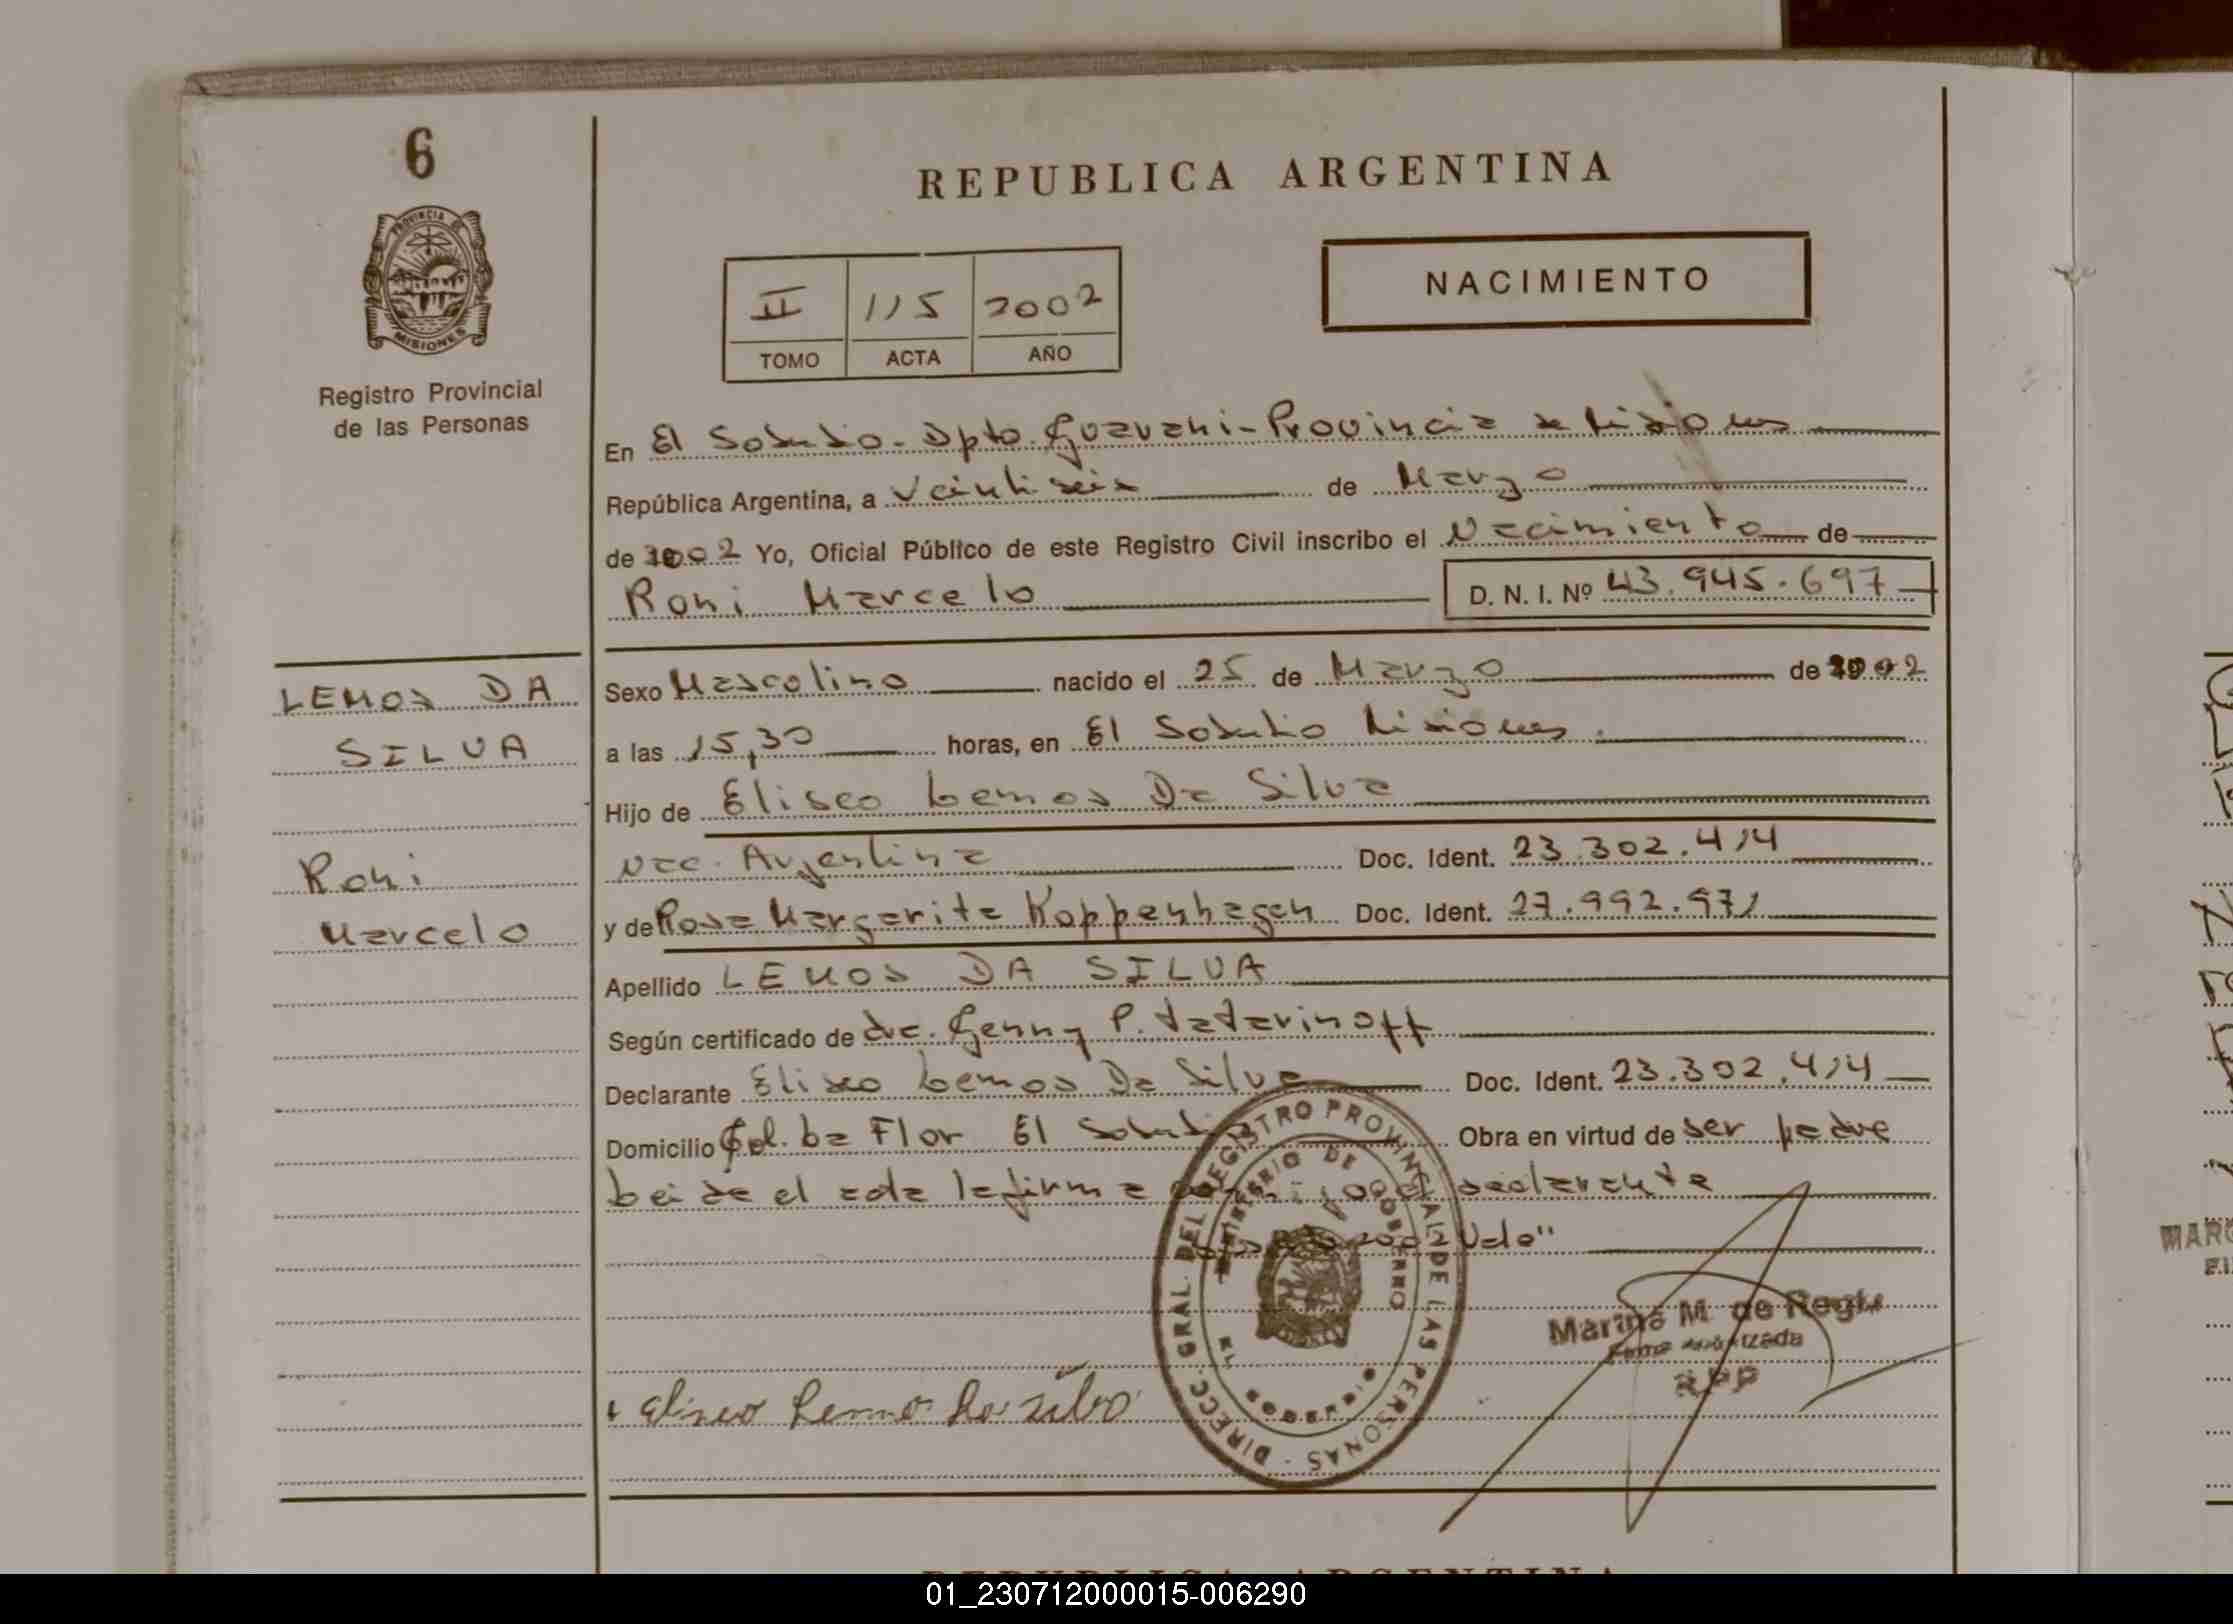 6
PROVINCIA DE
MISIONES
Registro Provincial
de las Personas
REPUBLICA ARGENTINA
NACIMIENTO
II 115 2002
TOMO ACTA AÑO
En El Soberbio - Dpto. Guarani - Provincia de Misiones
República Argentina, a Veintiseis de Marzo
de 2002 Yo, Oficial Público de este Registro Civil inscribo el Nacimiento de
Roni Marcelo D. N. I. Nº 43.945.697
LEMOS DA
SILVA
Roni
Marcelo
Sexo Masculino nacido el 25 de Marzo de 2002
a las 15,30 horas, en El Soberbio Misiones.
Hijo de Eliseo Lemos Da Silva
Nac. Argentina Doc. Ident. 23.302.414
y de Rosa Margarita Koppenhagen Doc. Ident. 27.992.971
Apellido LEMOS DA SILVA
Según certificado de dra. Genny P. Tatarinoff
Declarante Eliseo Lemos Da Silva Doc. Ident. 23.302.414
Domicilio Col. La Flor El Soberbio Obra en virtud de ser padre
Leida el acta la firma declarante
2002 Vale"
DIRECC. GRAL. DEL REGISTRO PROVINCIAL DE LAS PERSONAS
MINISTERIO DE GOBIERNO
Marina M. de Regis
Firma Autorizada
RPP
Eliseo Lemos Da Silva
REPUBLICA ARGENTINA
MARG
01_230712000015-006290